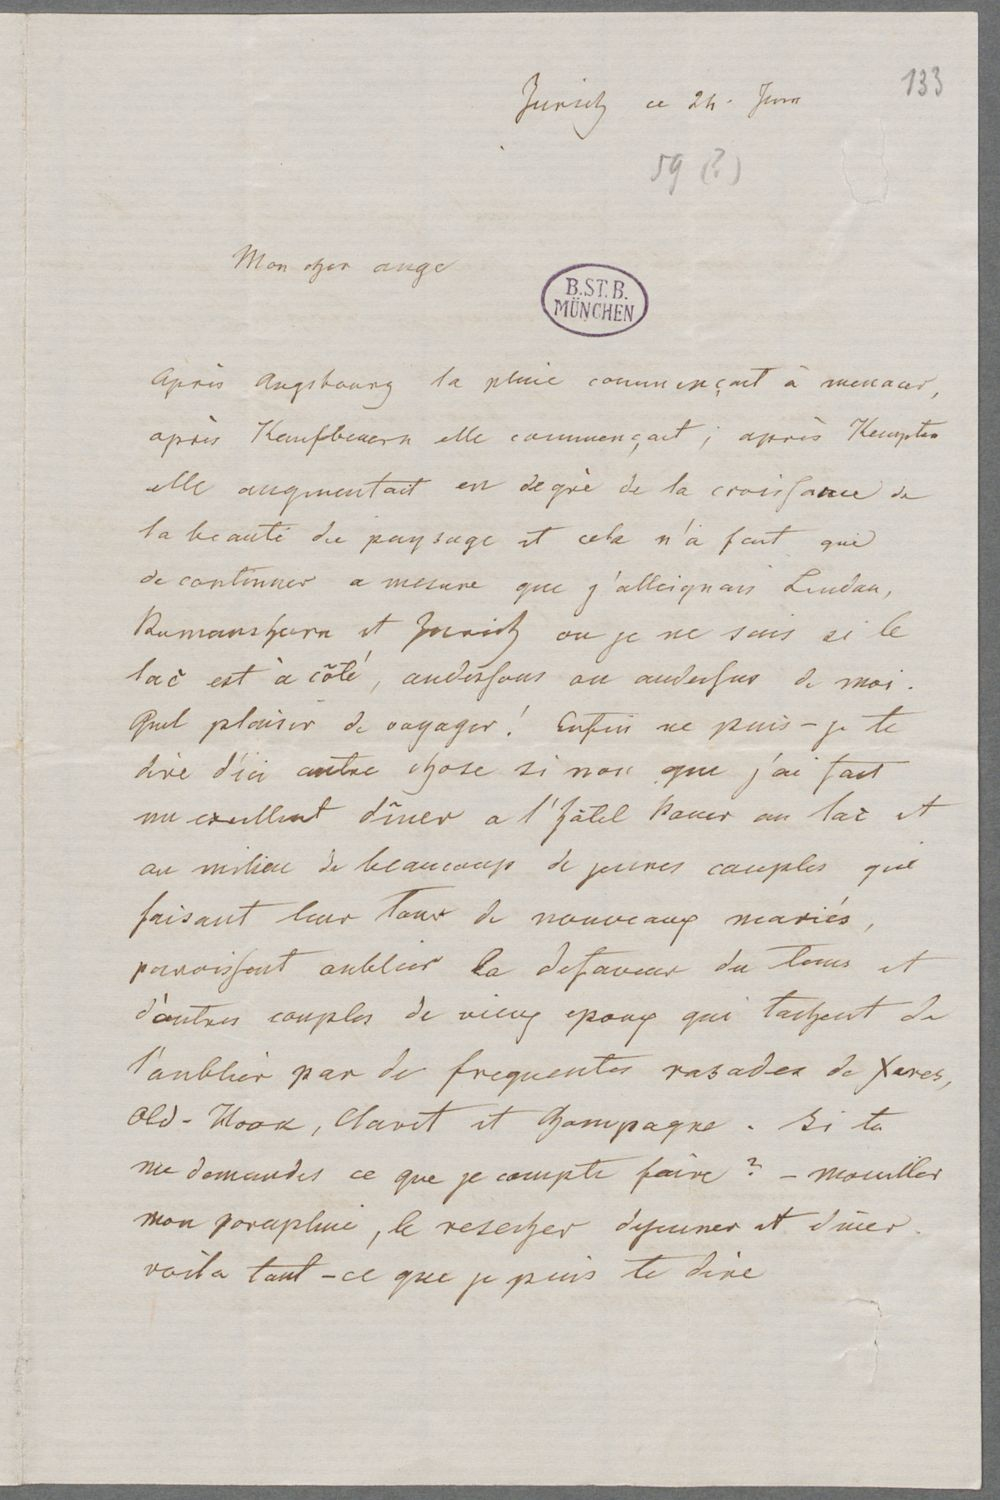 133
Zurich ce 24. Juin
59 (?)
Mon cher ange
B.ST.B.
MÜNCHEN
Après Augsbourg la pluie commençait à menacer,
après Kaufbeuern elle commençait; après Kempten
elle augmentait en degrè de la croissance de
la beauté du paysage et cela n'a fait que
de continuer a mesure que j'atteignais Lindau,
Romanshorn et Zurich ou je ne sais si le
lac est à côté, audessous ou audessus de moi.
Quel plaisir de voyager! Enfin ne puis-je te
dire d'ici autre chose si non que j'ai fait
un excellent dîner a l'hôtel Bauer au lac et
au milieu de beaucoup de jeunes couples qui
faisant leur tour de nouveaux mariés,
paroissent oublier la defaveur du tems et
d'autres couples de vieux epoux qui tachent de
l'oublier par de frequentes rasades de Xeres,
Old-Hook, Claret et Champagne. Si tu
me demandes ce que je compte faire? - mouiller
mon parapluie, le resecher dejeuner et dîner.
voila tout-ce que je puis te dire